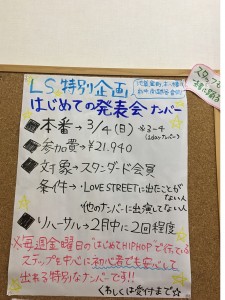 LS特別企画
はじめての発表会ナンバー
本番→3/4(日) ※3-4
参加費→¥21,940
対象→スタンダード会員
条件→・LOVE STREETに出たことがない人
他のナンバーに出演してない人
リハーサル→2月中に2回程度
※毎週金曜日の"はじめてHIPHOP"で行っている
ステップを中心に初心者でも安心して
出れる特別なナンバーです!!
くわしくは受付まで☆